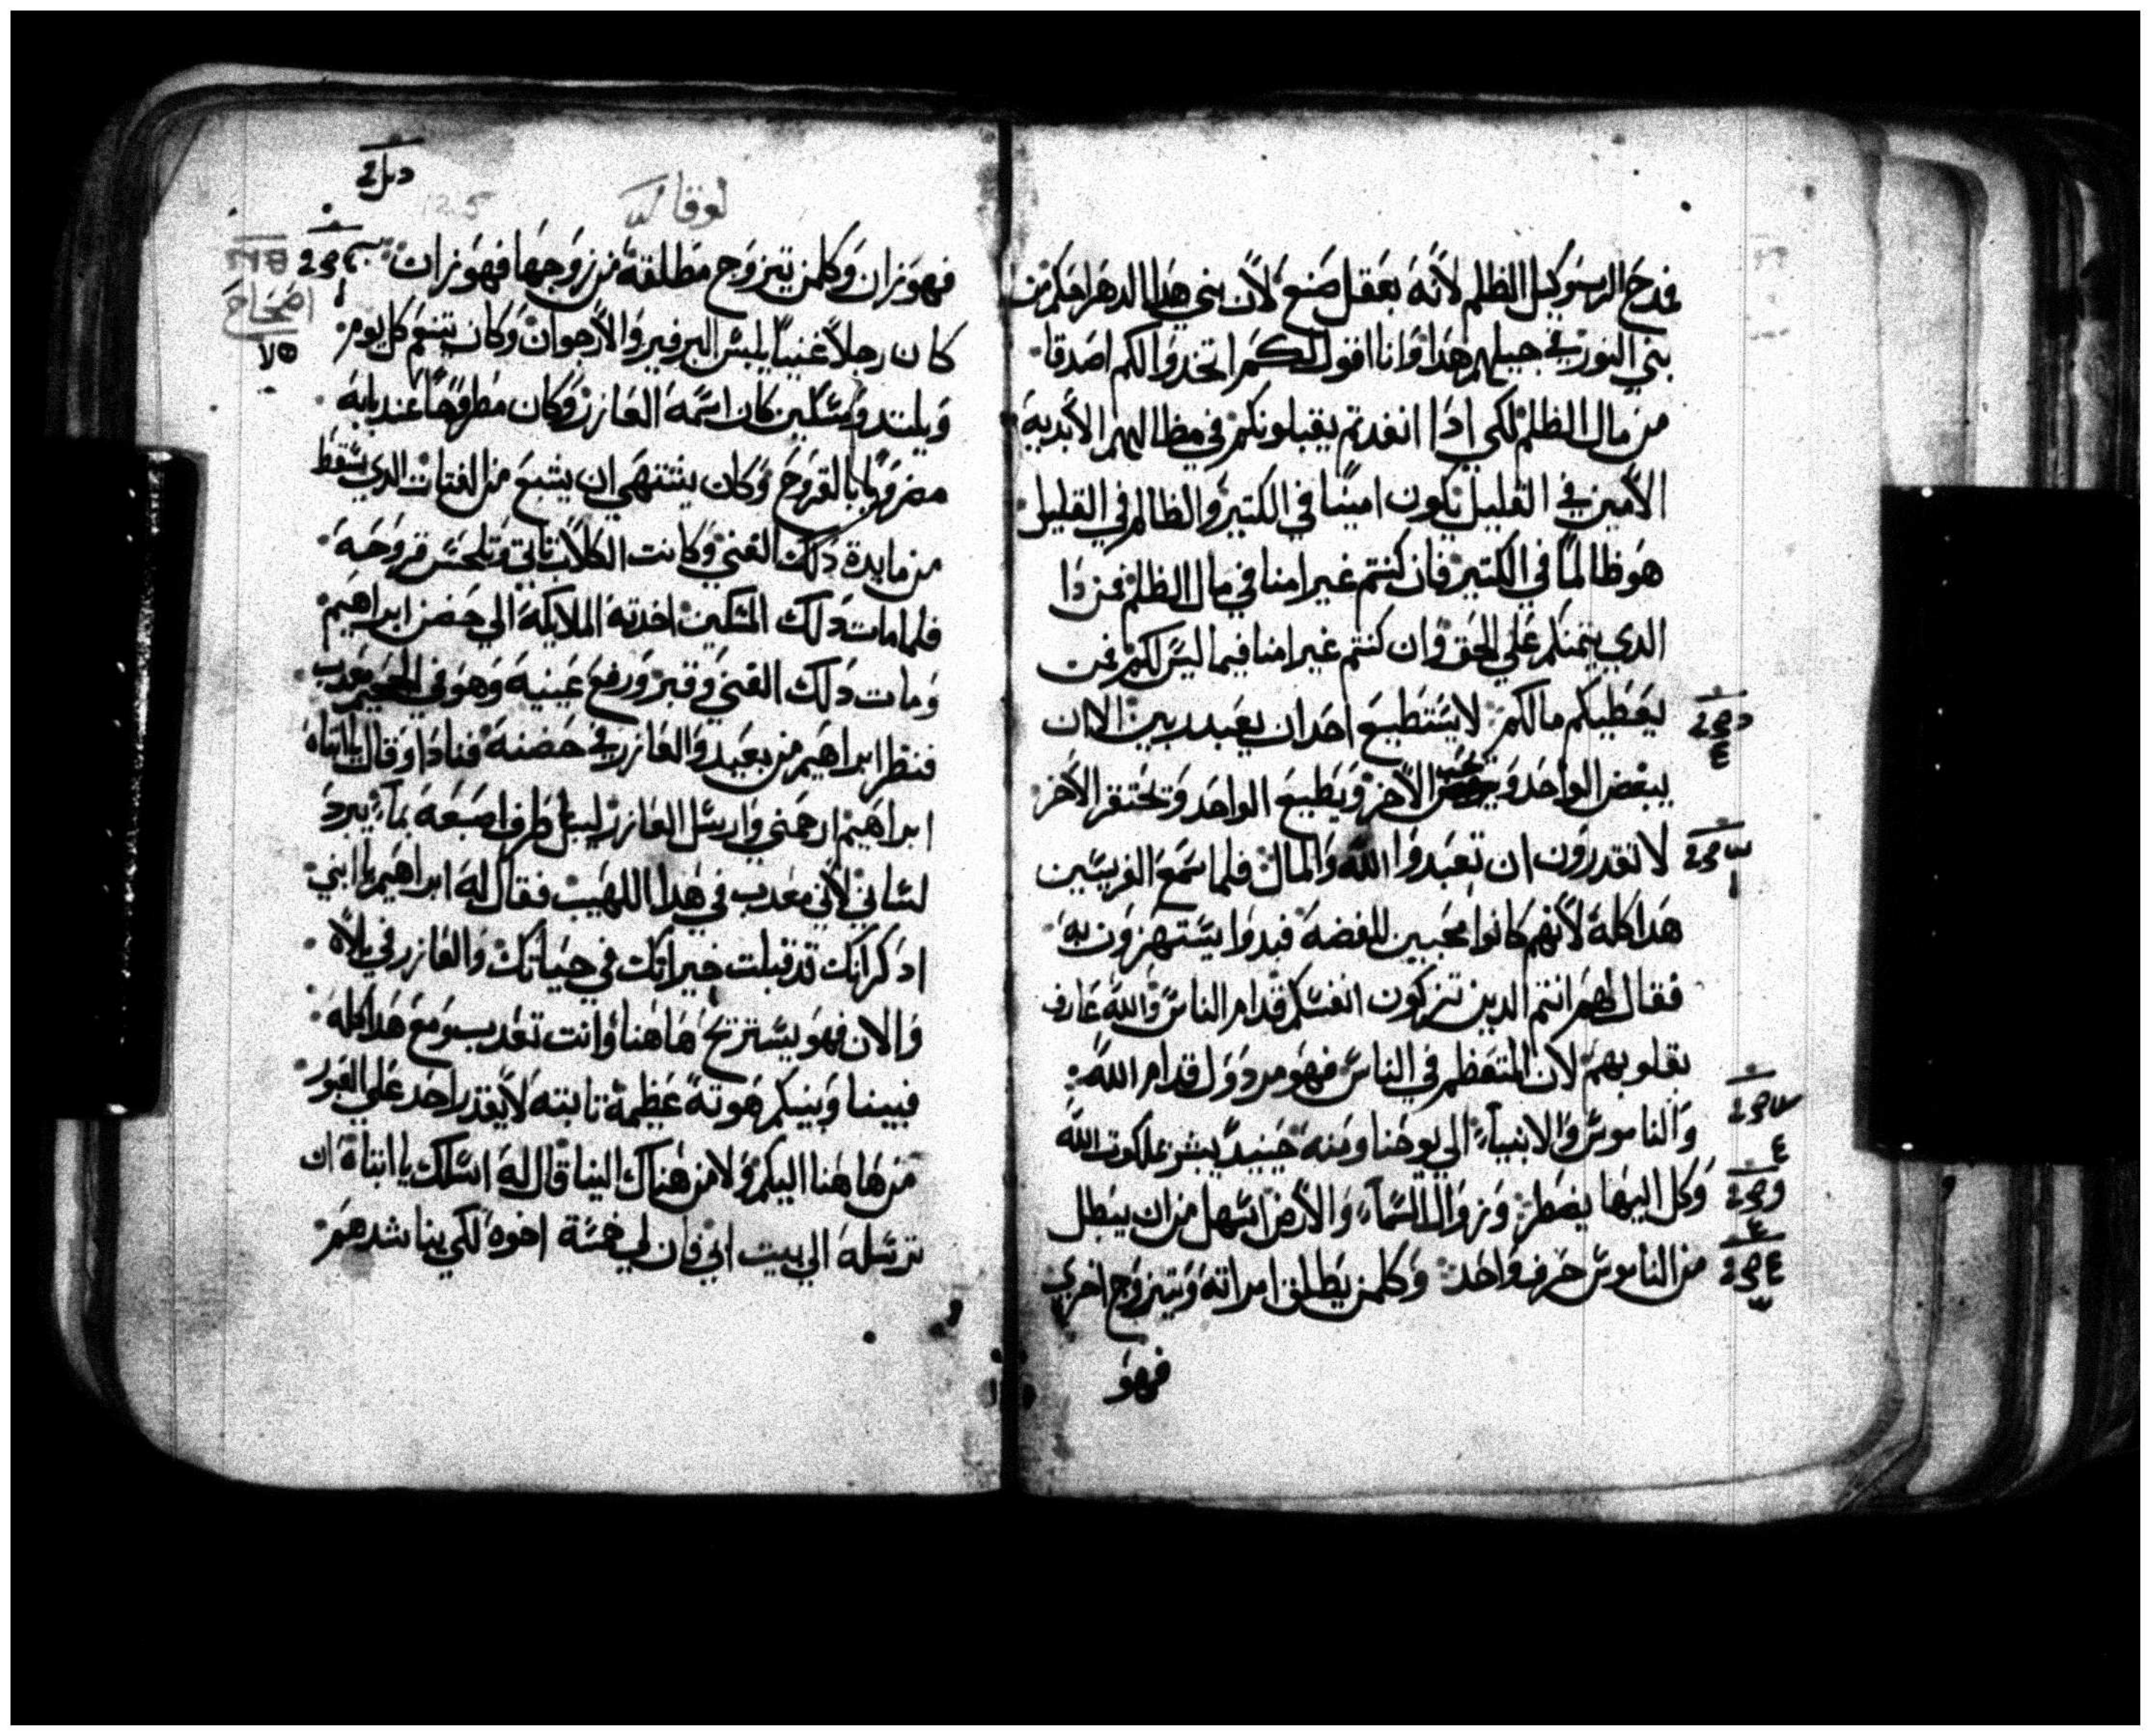 فمدح الرب وكيل الظلم لانه بعقل صنع لان بني هدا الدهر احكم من
بني النور في جيلهم هدا وانا اقول لكم اتخدوا لكم اصدقا
من مال الظلم لكي ادا انفدتم يقبلونكم في مظالهم الأبدية
الأمين في القليل يكون امينًا في الكتير والظالم في القليل
هو ظالمًا في الكتير فان كنتم غير امنا في مال الظلم فمن دا
الدي يتمنكم علي الحق وان كنتم غير امنا فيما ليس لكم فمن
يعطيكم مالكم لا يستطيع احد ان يعبد ربين الا ان
يبغض الواحد ويحب الأخر ويطيع الواحد ويحتقر الأخر
لا تقدرون ان تعبدوا الله والمال فلما سمع الفريسين
هدا كله لأنهم كانوا محبين للفضه فبدوا يستهزون به
فقال لهم انتم الدين تزكون انفسكم قدام الناس والله عارف
بقلوبهم لان المتعظم في الناس فهو مردول قدام الله
والناموس والانبياء الي يوحنا ومنه حينيد يبشر بملكوت الله
وكل اليها يضطر وزوال السماء والأرض اسهل من ان يبطل
من الناموس حرف واحد وكلمن يطلق امراته ويتزوج اخري
فهو
لوقا
فهو زان وكلمن تيزوج مطلقة من زوجها فهو زان
اصحاح
كان رجلاً غنيًا يلبس البرفير والأرجوان وكان يتنعم كل يوم
ويلتد ومسكين كان اسمه العازر وكان مطروحًا عند بابه
مضروبًا بالقروح وكان يشتهي ان يشبع من الفتات الدي يسقط
من مايدة دلك الغني وكانت الكلاب تاتي وتلحس قروحه
فلما مات دلك المسكين اخدته الملايكة الي حضن ابراهيم
ومات دلك الغني وقبر ورفع عينيه وهو في الجحيم معدب
فنظر ابراهيم من بعيد والعازر في حضنه فنادا وقال يا ابتاه
ابراهيم ارحمني وارسل العازر ليبل طرف اصبعه بماء يبرد
لساني لأني معدب في هدا اللهيب فقال له ابراهيم يا ابني
ادكر انك قد قبلت خيراتك في حياتك والعازر في بلاه
والان فهو يستريح هاهنا وانت تعدب ومع هدا كله
فبيننا وبينكم هوته عظيمة تابته لا يقدر احد علي العبور
من هاهنا اليكم ولا من هناك الينا قال له اسلك يا ابتاه ان
ترسله الي بيت ابي فان لي خمسة اخوه لكي يناشدهم